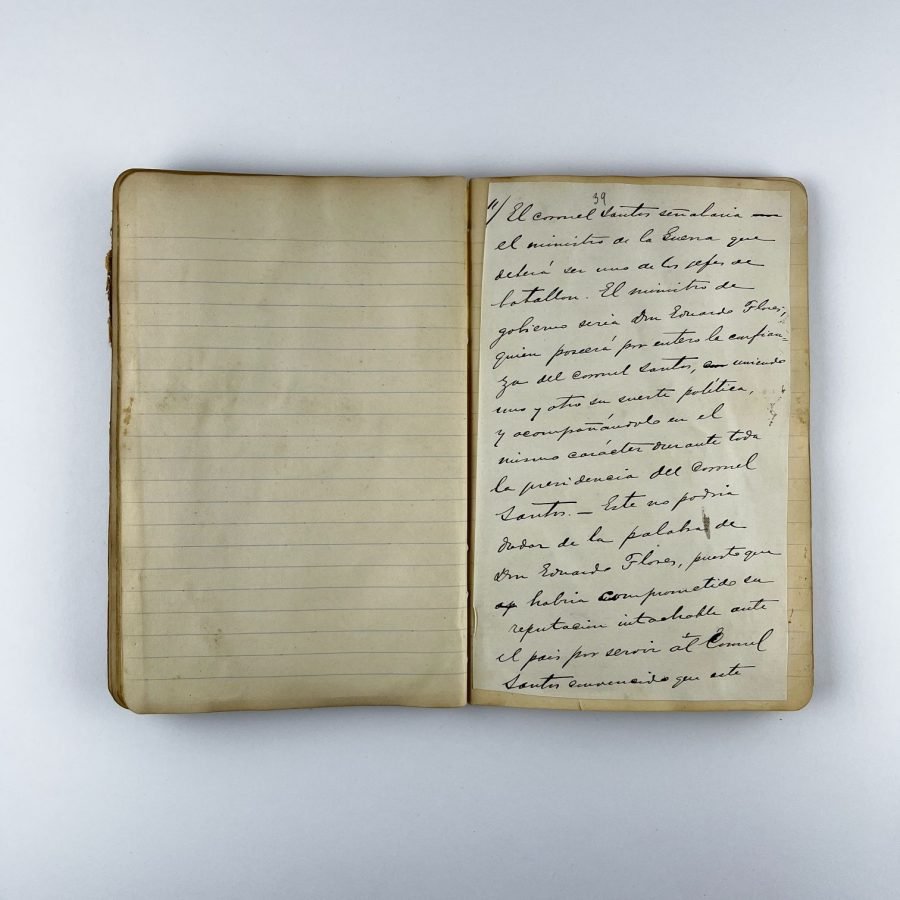 39
11/ El coronel Santos señalaria
el ministro de la Guerra que
deberá ser uno de los jefes de
batallon. El ministro de
gobierno seria Don Eduardo Flores,
quien poseerá por entero la confian=
za del coronel Santos, uniendo
uno y otro su suerte política,
y acompañándolo en el
mismo carácter durante toda
la presidencia del Coronel
Santos. — Este no podria
dudar de la palabra de
Don Eduardo Flores, puesto que
habria comprometido su
reputacion intachable ante
el pais por servir al Coronel
Santos convencido que este